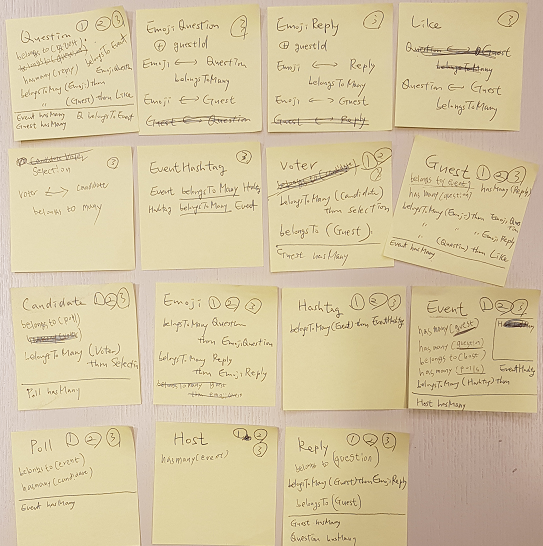 Question ① ② ③
belongs to (guest)
hasmany (reply) belongsTo Event
belongsToMany (Emoji) then EmojiQuestion
" (Guest) then Like
Event hasMany Q belongsTo Event
Guest hasMany
Emoji Question ③
⊕ guestId
Emoji ⟷ Question
belongsToMany
Emoji ⟷ Guest
Guest ⟷ Question
Emoji Reply ③
⊕ guestId
Emoji ⟷ Reply
belongsToMany
Emoji ⟷ Guest
Guest ⟷ Reply
Like ③
Question ⟷ Guest
belongsToMany
Question ⟷ Guest
belongsToMany
Candidate Voter ③
Selection
Voter ⟷ Candidate
belongs to many
EventHashtag ③
Event belongsToMany Hashtag
Hashtag belongsToMany Event
Voter ① ② ③
belongsToMany (Candidate)
then Selection
belongsTo (Guest)
Guest hasMany
Guest ① ② ③
belongs to (Event) hasMany (Reply)
has many (question)
belongsToMany (Emoji) then Emoji Question
" " Emoji Reply
" (Question) then Like
Event hasMany
Candidate ① ② ③
belongs to (poll)
belongsToMany (Voter)
then Selection
Poll hasMany
Emoji ① ② ③
belongsToMany Question
then EmojiQuestion
belongsToMany Reply
then EmojiReply
Hashtag ① ② ③
belongsToMany (Event) then EventHashtag
Event ① ② ③
has many (guest)
has many (question)
belongs to (host)
has many (polls)
EventHashtag
belongsToMany (Hashtag) then
Host hasMany
Poll ① ② ③
belongs to (event)
hasmany (candidate)
Event hasMany
Host ① ② ③
hasmany (event)
Reply ① ② ③
belong to (question)
belongsToMany (Guest) then Emoji Reply
belongsTo (Guest)
Guest hasMany
Question hasMany